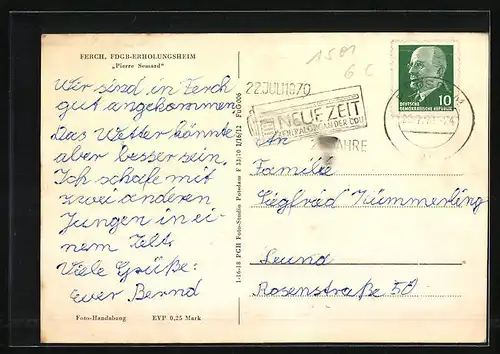 FERCH, FDGB-ERHOLUNGSHEIM
„Pierre Semard"
Wir sind in Ferch
gut angekommen.
Das Wetter könnte
aber besser sein.
Ich schlafe mit
zwei anderen
Jungen in ei-
nem Zelt.
Viele Grüße:
Euer Bernd
Foto-Handabzug EVP 0,25 Mark
1-16-18 PGH Foto-Studio Potsdam
1581
6 C
22JULI1970
NEUE ZEIT
ZENTRALORGAN DER CDU
JAHRE
10
DEUTSCHE
DEMOKRATISCHE REPUBLIK
An
Familie
Siegfried Kümmerling
Leuna
Rosenstraße 50